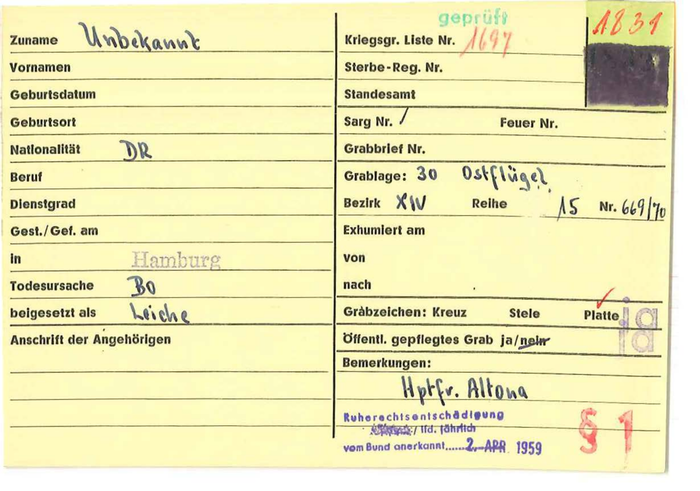 Zuname Unbekannt
Vornamen
Geburtsdatum
Geburtsort
Nationalität DR
Beruf
Dienstgrad
Gest./Gef. am
in Hamburg
Todesursache BO
beigesetzt als Leiche
Anschrift der Angehörigen
geprüft
1831
Kriegsgr. Liste Nr. 1697
Sterbe-Reg. Nr.
Standesamt
Sarg Nr. / Feuer Nr.
Grabbrief Nr.
Grablage: 30 Ostflügel
Bezirk XIV Reihe 15 Nr. 669/70
Exhumiert am
von
nach
Grabzeichen: Kreuz Stele Platte ✓ ja
Öffentl. gepflegtes Grab ja/nein ja
Bemerkungen:
Hptfr. Altona
Ruherechtsentschädigung
/ lfd. jährlich
vom Bund anerkannt......2. APR. 1959
§ 1